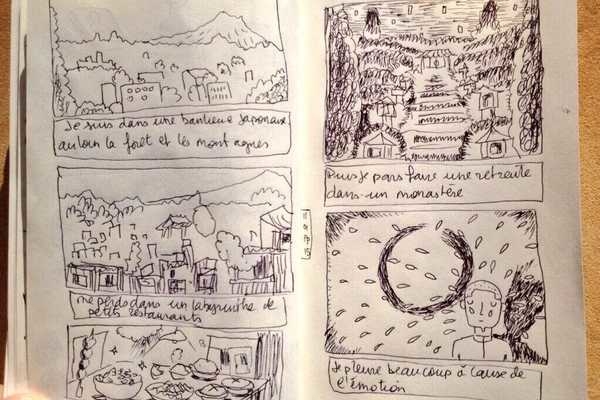 Je suis dans une banlieue Japonaise
au loin la forêt et les montagnes
me perds dans un labyrinthe de
petits restaurants
Puis je pars faire une retraite
dans un monastère
Je pleure beaucoup à cause de
l'émotion